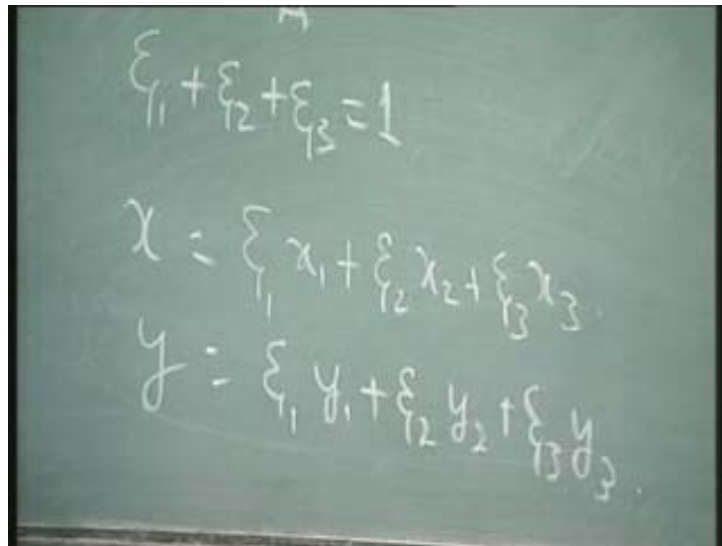 ξ₁ + ξ₂ + ξ₃ = 1
x = ξ₁ x₁ + ξ₂ x₂ + ξ₃ x₃.
y = ξ₁ y₁ + ξ₂ y₂ + ξ₃ y₃.